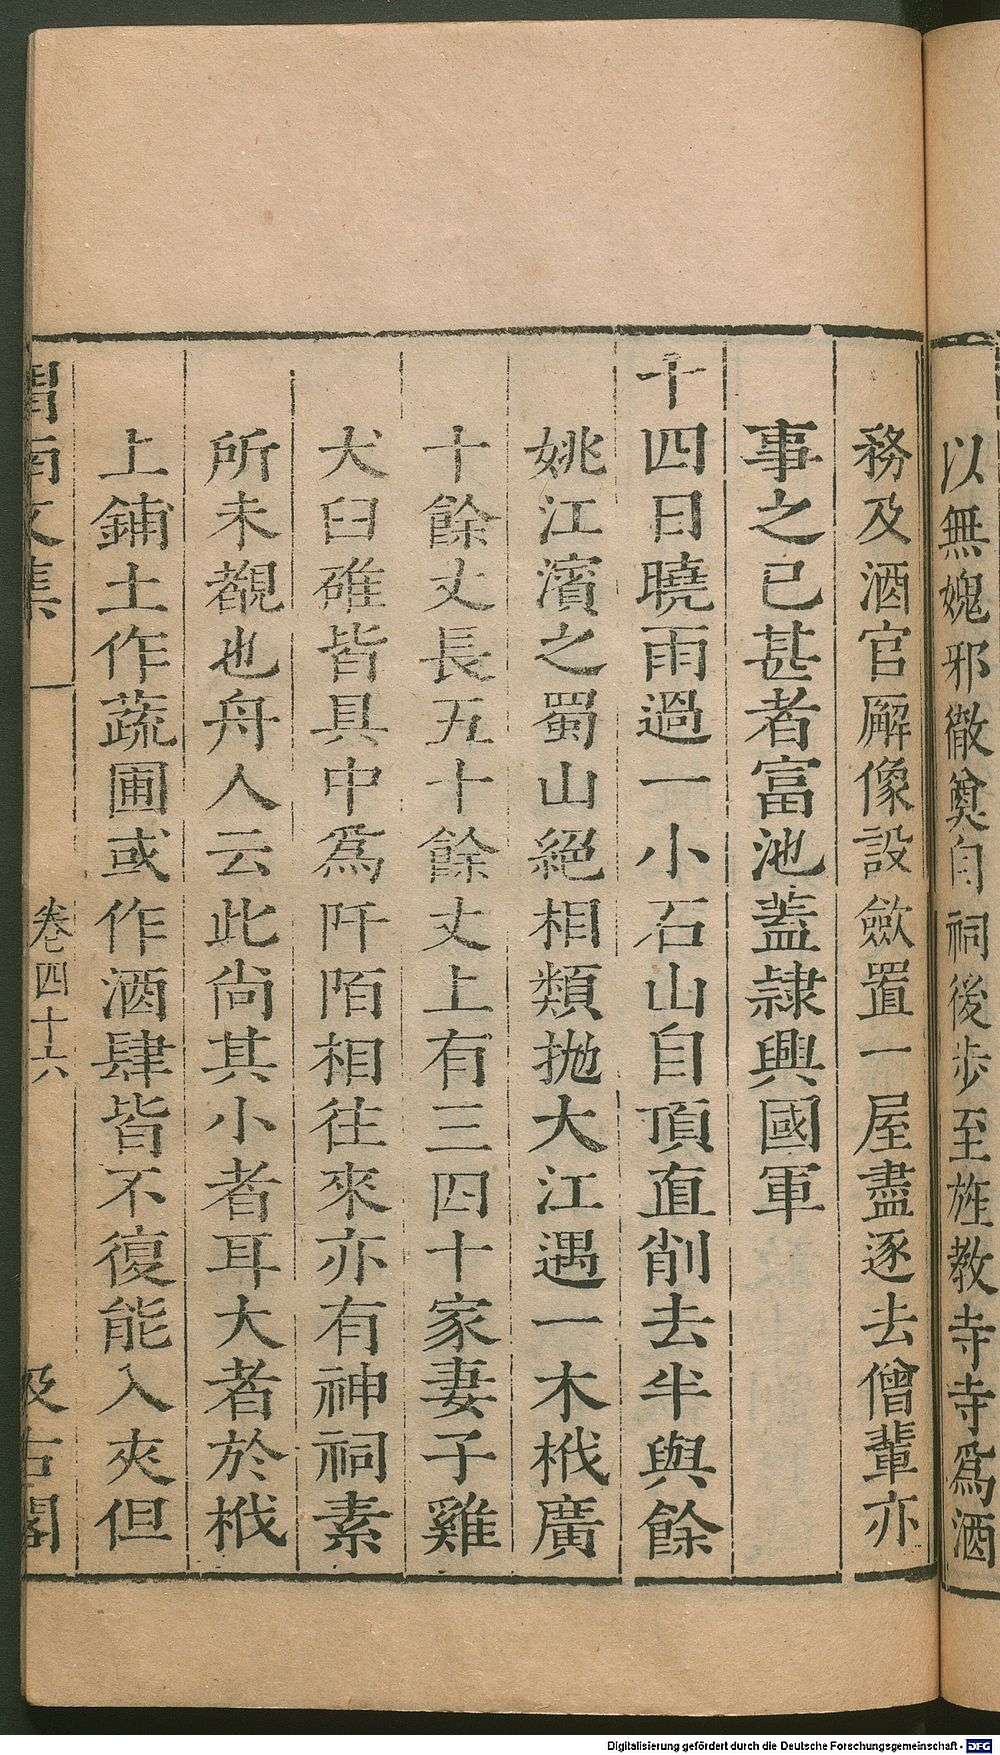 以無媿邪徹奠自祠後步至旌教寺寺爲酒
務及酒官廨像設歛置一屋盡逐去僧輩亦
事之已甚者富池蓋隷興國軍
十四日曉雨過一小石山自頂直削去半與餘
姚江濱之蜀山絕相類拋大江遇一木栰廣
十餘丈長五十餘丈上有三四十家妻子雞
犬臼碓皆具中爲阡陌相往來亦有神祠素
所未覩也舟人云此尙其小者耳大者於栰
上鋪土作蔬圃或作酒肆皆不復能入夾但
渭南文集 卷四十六 汲古閣
Digitalisierung gefördert durch die Deutsche Forschungsgemeinschaft - DFG